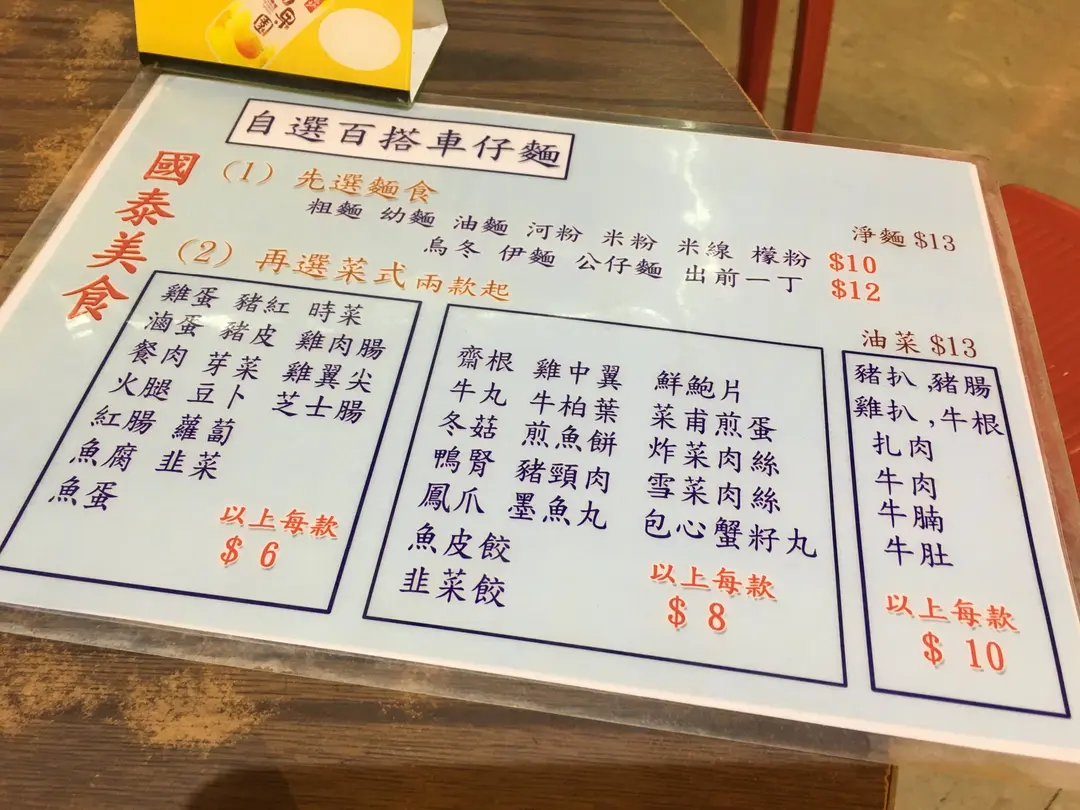 自選百搭車仔麵
國泰美食
(1) 先選麵食
粗麵 幼麵 油麵 河粉 米粉 米線 檬粉 $10
淨麵 $13
烏冬 伊麵 公仔麵 出前一丁 $12
(2) 再選菜式 兩款起
雞蛋 豬紅 時菜
滷蛋 豬皮 雞肉腸
餐肉 芽菜 雞翼尖
火腿 豆卜 芝士腸
紅腸 蘿蔔
魚腐 韭菜
魚蛋
以上每款
$ 6
齋根 雞中翼 鮮鮑片
牛丸 牛柏葉 菜甫煎蛋
冬菇 煎魚餅 炸菜肉絲
鴨腎 豬頸肉 雪菜肉絲
鳳爪 墨魚丸 包心蟹籽丸
魚皮餃
韭菜餃
以上每款
$ 8
油菜 $13
豬扒 , 豬腸
雞扒 , 牛根
扎肉
牛肉
牛腩
牛肚
以上每款
$ 10